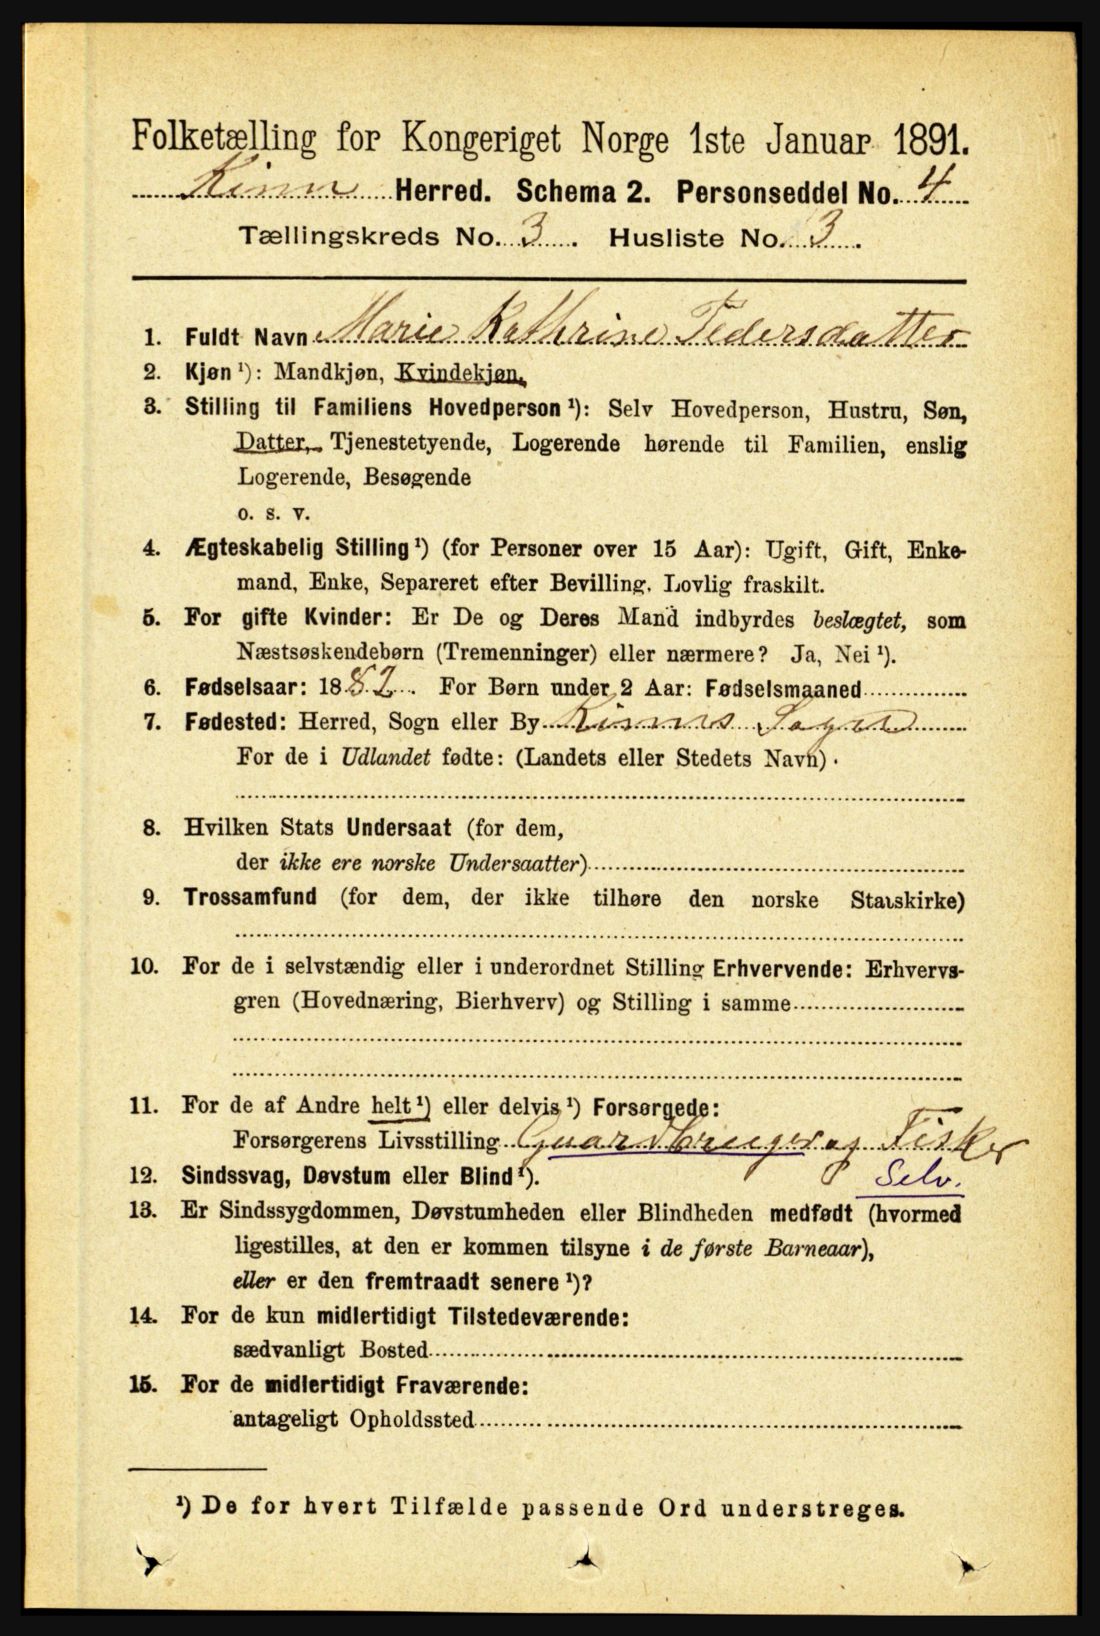 Folketælling for Kongeriget Norge 1ste Januar 1891.
Kinn Herred. Schema 2. Personseddel No. 4
Tællingskreds No. 3. Husliste No. 3.
1. Fuldt Navn Marie Kathrine Pedersdatter
2. Kjøn ¹): Mandkjøn, Kvindekjøn.
3. Stilling til Familiens Hovedperson ¹): Selv Hovedperson, Hustru, Søn,
Datter, Tjenestetyende, Logerende hørende til Familien, enslig
Logerende, Besøgende
o. s. v.
4. Ægteskabelig Stilling ¹) (for Personer over 15 Aar): Ugift, Gift, Enke-
mand, Enke, Separeret efter Bevilling. Lovlig fraskilt.
5. For gifte Kvinder: Er De og Deres Mand indbyrdes beslægtet, som
Næstsøskendebørn (Tremenninger) eller nærmere? Ja, Nei ¹).
6. Fødselsaar: 1882. For Børn under 2 Aar: Fødselsmaaned
7. Fødested: Herred, Sogn eller By Kinns Sogn
For de i Udlandet fødte: (Landets eller Stedets Navn).
8. Hvilken Stats Undersaat (for dem,
der ikke ere norske Undersaatter)
9. Trossamfund (for dem, der ikke tilhøre den norske Statskirke)
10. For de i selvstændig eller i underordnet Stilling Erhvervende: Erhvervs-
gren (Hovednæring, Bierhverv) og Stilling i samme
11. For de af Andre helt ¹) eller delvis ¹) Forsørgede:
Forsørgerens Livsstilling Gaardbruger og Fisker
12. Sindssvag, Døvstum eller Blind ¹). Selv.
13. Er Sindssygdommen, Døvstumheden eller Blindheden medfødt (hvormed
ligestilles, at den er kommen tilsyne i de første Barneaar),
eller er den fremtraadt senere ¹)?
14. For de kun midlertidigt Tilstedeværende:
sædvanligt Bosted
15. For de midlertidigt Fraværende:
antageligt Opholdssted
¹) De for hvert Tilfælde passende Ord understreges.